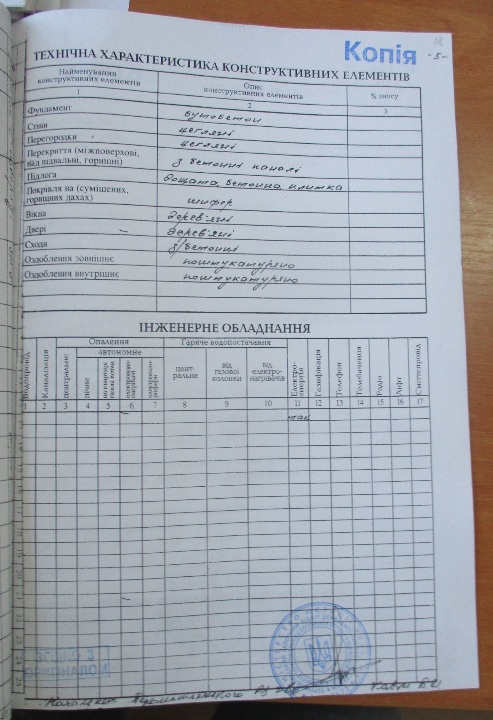 Копія
18
-5-
ТЕХНІЧНА ХАРАКТЕРИСТИКА КОНСТРУКТИВНИХ ЕЛЕМЕНТІВ
Найменування конструктивних елементів
Опис конструктивних елементів
% зносу
1 2 3
Фундамент бутобетон
Стіни цегляні
Перегородки цегляні
Перекриття (міжповерхові, над підвальні, горищні) з. бетонні панелі
Підлога дощата, бетонна, плитка
Покрівля на (суміщених, горищних дахах) шифер
Вікна дерев'яні
Двері дерев'яні
Сходи з/бетонні
Оздоблення зовнішнє поштукатурено
Оздоблення внутрішнє поштукатурено
ІНЖЕНЕРНЕ ОБЛАДНАННЯ
Водопровід
Каналізація
Опалення
центральне
автономне
пічне
Гаряче водопостачання
цент-ральне
від газової колонки
від електро-нагрівачів
Електро-енергія
Газифікація
Телефон
Телебачення
Радіо
Ліфт
Сміттєпровід
1 2 3 4 5 6 7 8 9 10 11 12 13 14 15 16 17
так
ЗГІДНО З
ОРИГІНАЛОМ